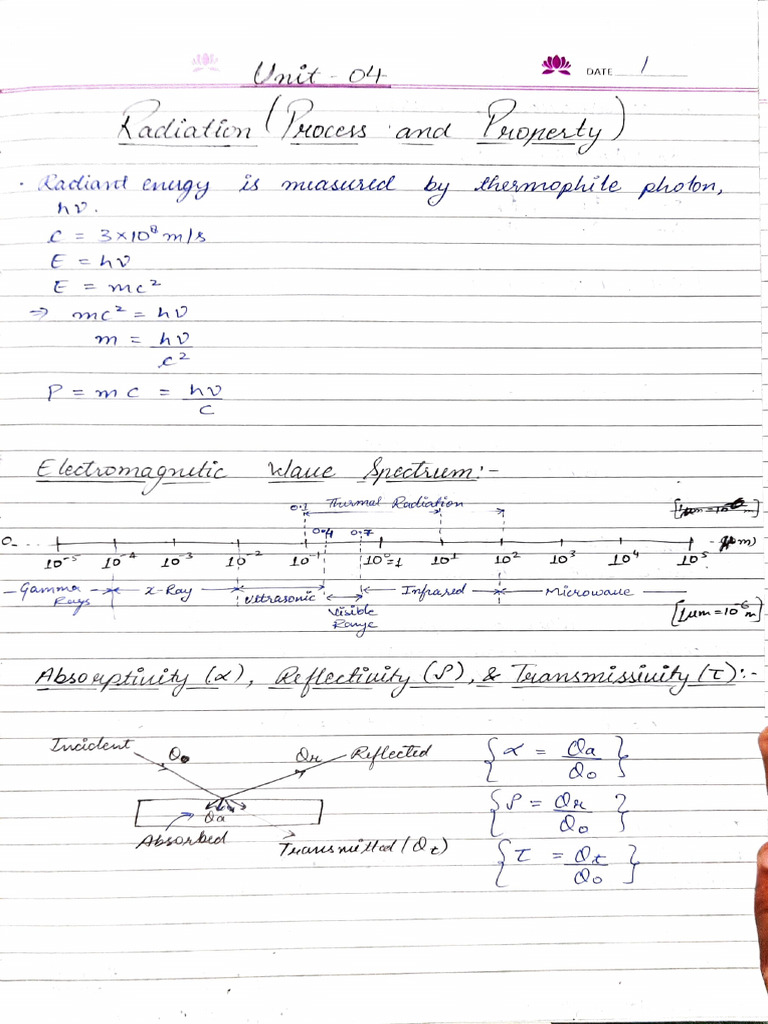 Unit - 04
DATE 1
Radiation (Process and Property)
· Radiant energy is measured by thermophile photon,
hν.
C = 3×10⁸ m/s
E = hν
E = mc²
⇒ mc² = hν
m = hν/c²
P = mc = hν/C
Electromagnetic Wave Spectrum:-
0.1 Thermal Radiation
0.4 0.7
0 10⁻⁵ 10⁻⁴ 10⁻³ 10⁻² 10⁻¹ 10⁰=1 10¹ 10² 10³ 10⁴ 10⁵ (μm)
Gamma Rays X-Ray Ultrasonic Visible Range Infrared Microwave [1μm = 10⁻⁶ m]
Absorptivity (α), Reflectivity (ρ), & Transmissivity (τ):-
Incident Q₀ Qr Reflected
{α = Qa/Q₀}
Qa
{ρ = Qr/Q₀}
Absorbed Transmitted (Qt)
{τ = Qt/Q₀}